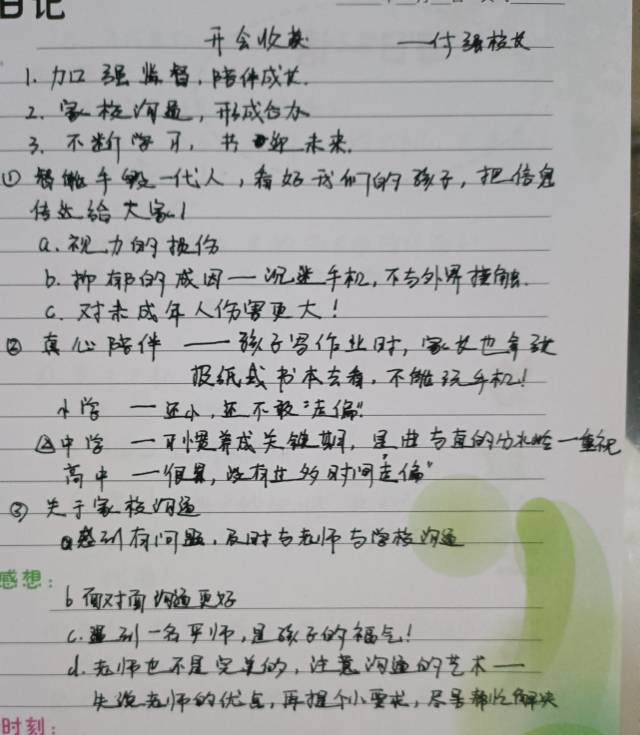 日记
开会收获 ——付强校长
1. 加强监督，陪伴成长.
2. 家校沟通，形成合力
3. 不断学习，共迎未来.
① 智能手毁一代人，看好我们的孩子，把信息
传达给大家！
a. 视力的损伤
b. 抑郁的成因—沉迷手机，不与外界接触.
c. 对未成年人伤害更大！
② 真心陪伴 ——孩子写作业时，家长也拿张
报纸或书本去看，不能玩手机！
小学 —还小，还不敢"走偏"
中学 —习惯养成关键期，是曲与直的分水岭—重视
高中 —很累，没有过多时间"走偏"
③ 关于家校沟通
a 感到有问题，及时与老师与学校沟通
感想：
b 面对面沟通更好
c. 遇到一名严师，是孩子的福气！
d. 老师也不是完美的，注意沟通的艺术——
先说老师的优点，再提个小要求，尽量帮忙解决
时刻：